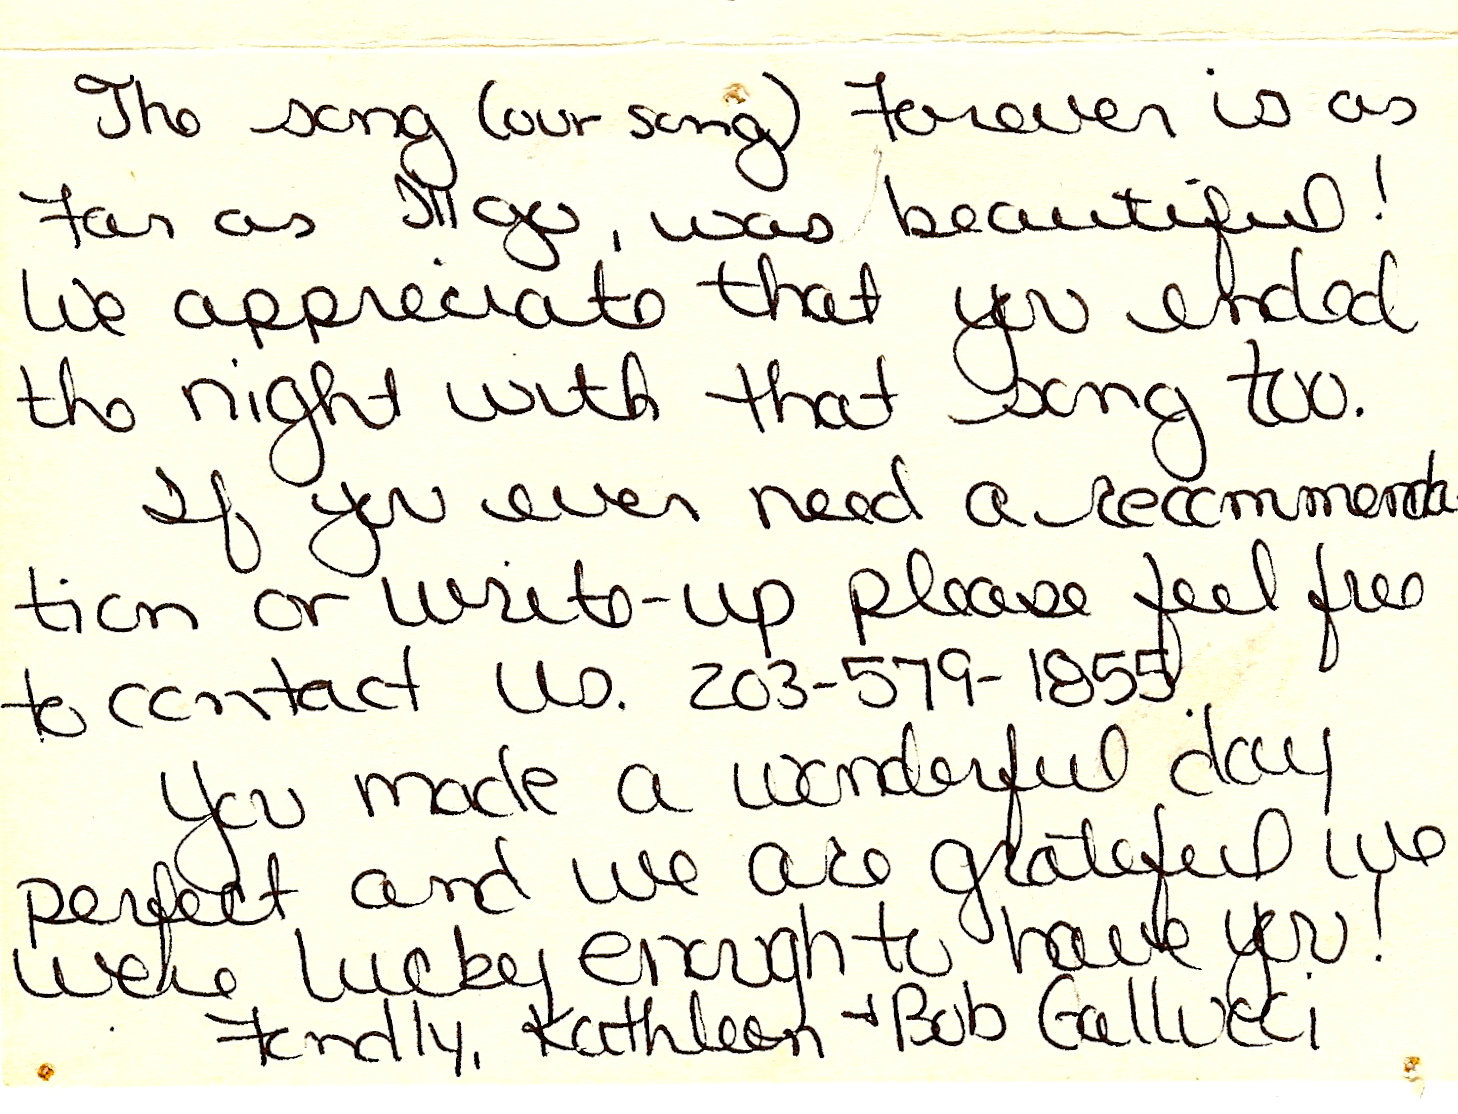 The song (our song) Forever is as
far as I'll go, was beautiful!
We appreciate that you ended
the night with that song too.
If you ever need a recommenda-
tion or write-up please feel free
to contact us. 203-579-1855
You made a wonderful day
perfect and we are grateful we
were lucky enough to have you!
Fondly, Kathleen + Bob Gallucci